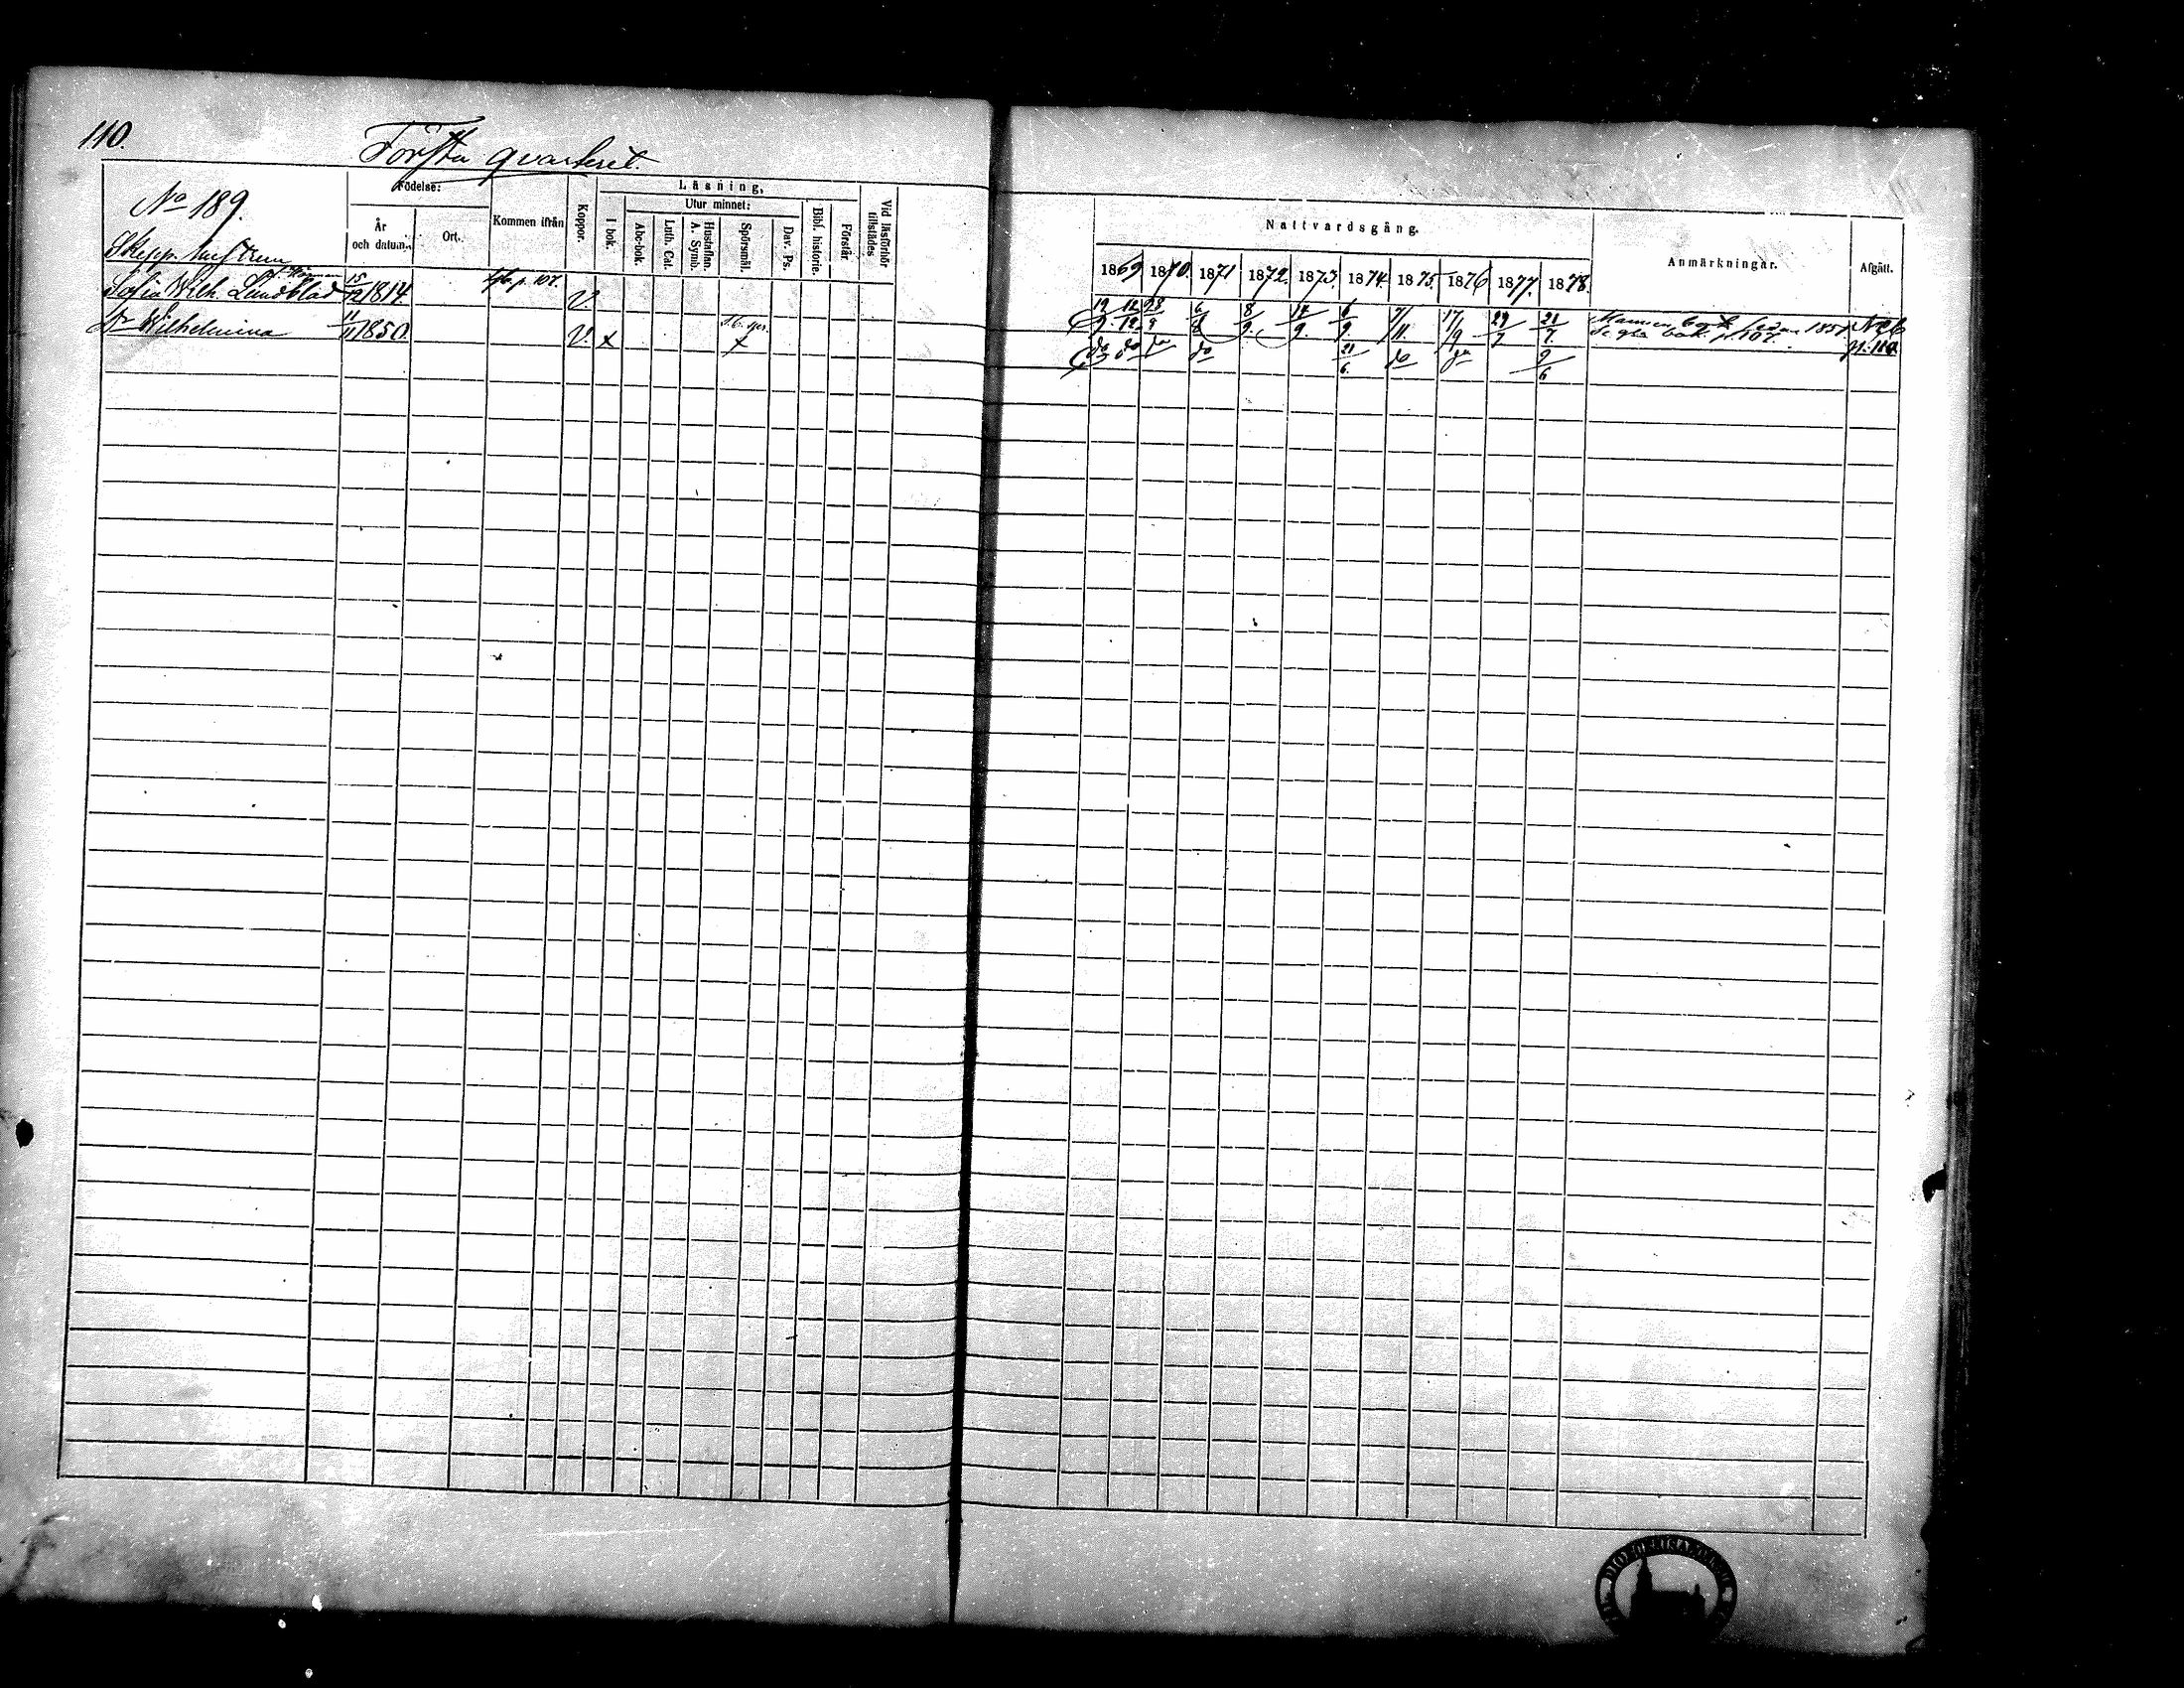 110.
Första qvarteret.
No 189.
Födelse:
År och datum.
Ort.
Kommen ifrån
Koppor.
Läsning.
I bok.
Utur minnet:
Abc-bok.
Luth. Cat.
Hustaflan. A. Symb.
Spörsmål.
Dav. Ps.
Bibl. historie.
Förstår.
Vid läsförhör tillstädes
Nattvardsgång.
1869 1870. 1871 1872. 1873. 1874. 1875. 1876 1877. 1878.
Anmärkningar.
Afgått.
Skepp. hustrun
Sofia Wilh. Lundblad 15/12 1814 p. 107. V.
19/9 12/12 28/9 8/9 17/9 6/9 7/11 17/9 29/7 21/7
Mannen sedan 1857
Dr Wilhelmina 11/11 1850. V. x x
do do do do 21/6 do do 9/6
bok p. 107.
p. 110